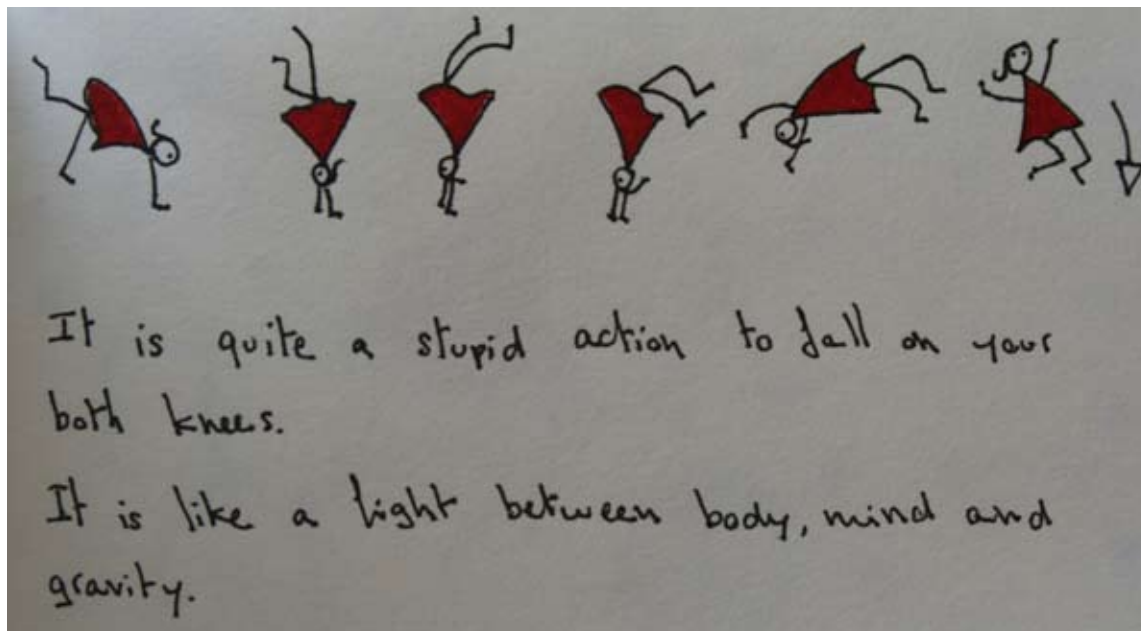 It is quite a stupid action to fall on your
both knees.
It is like a fight between body, mind and
gravity.